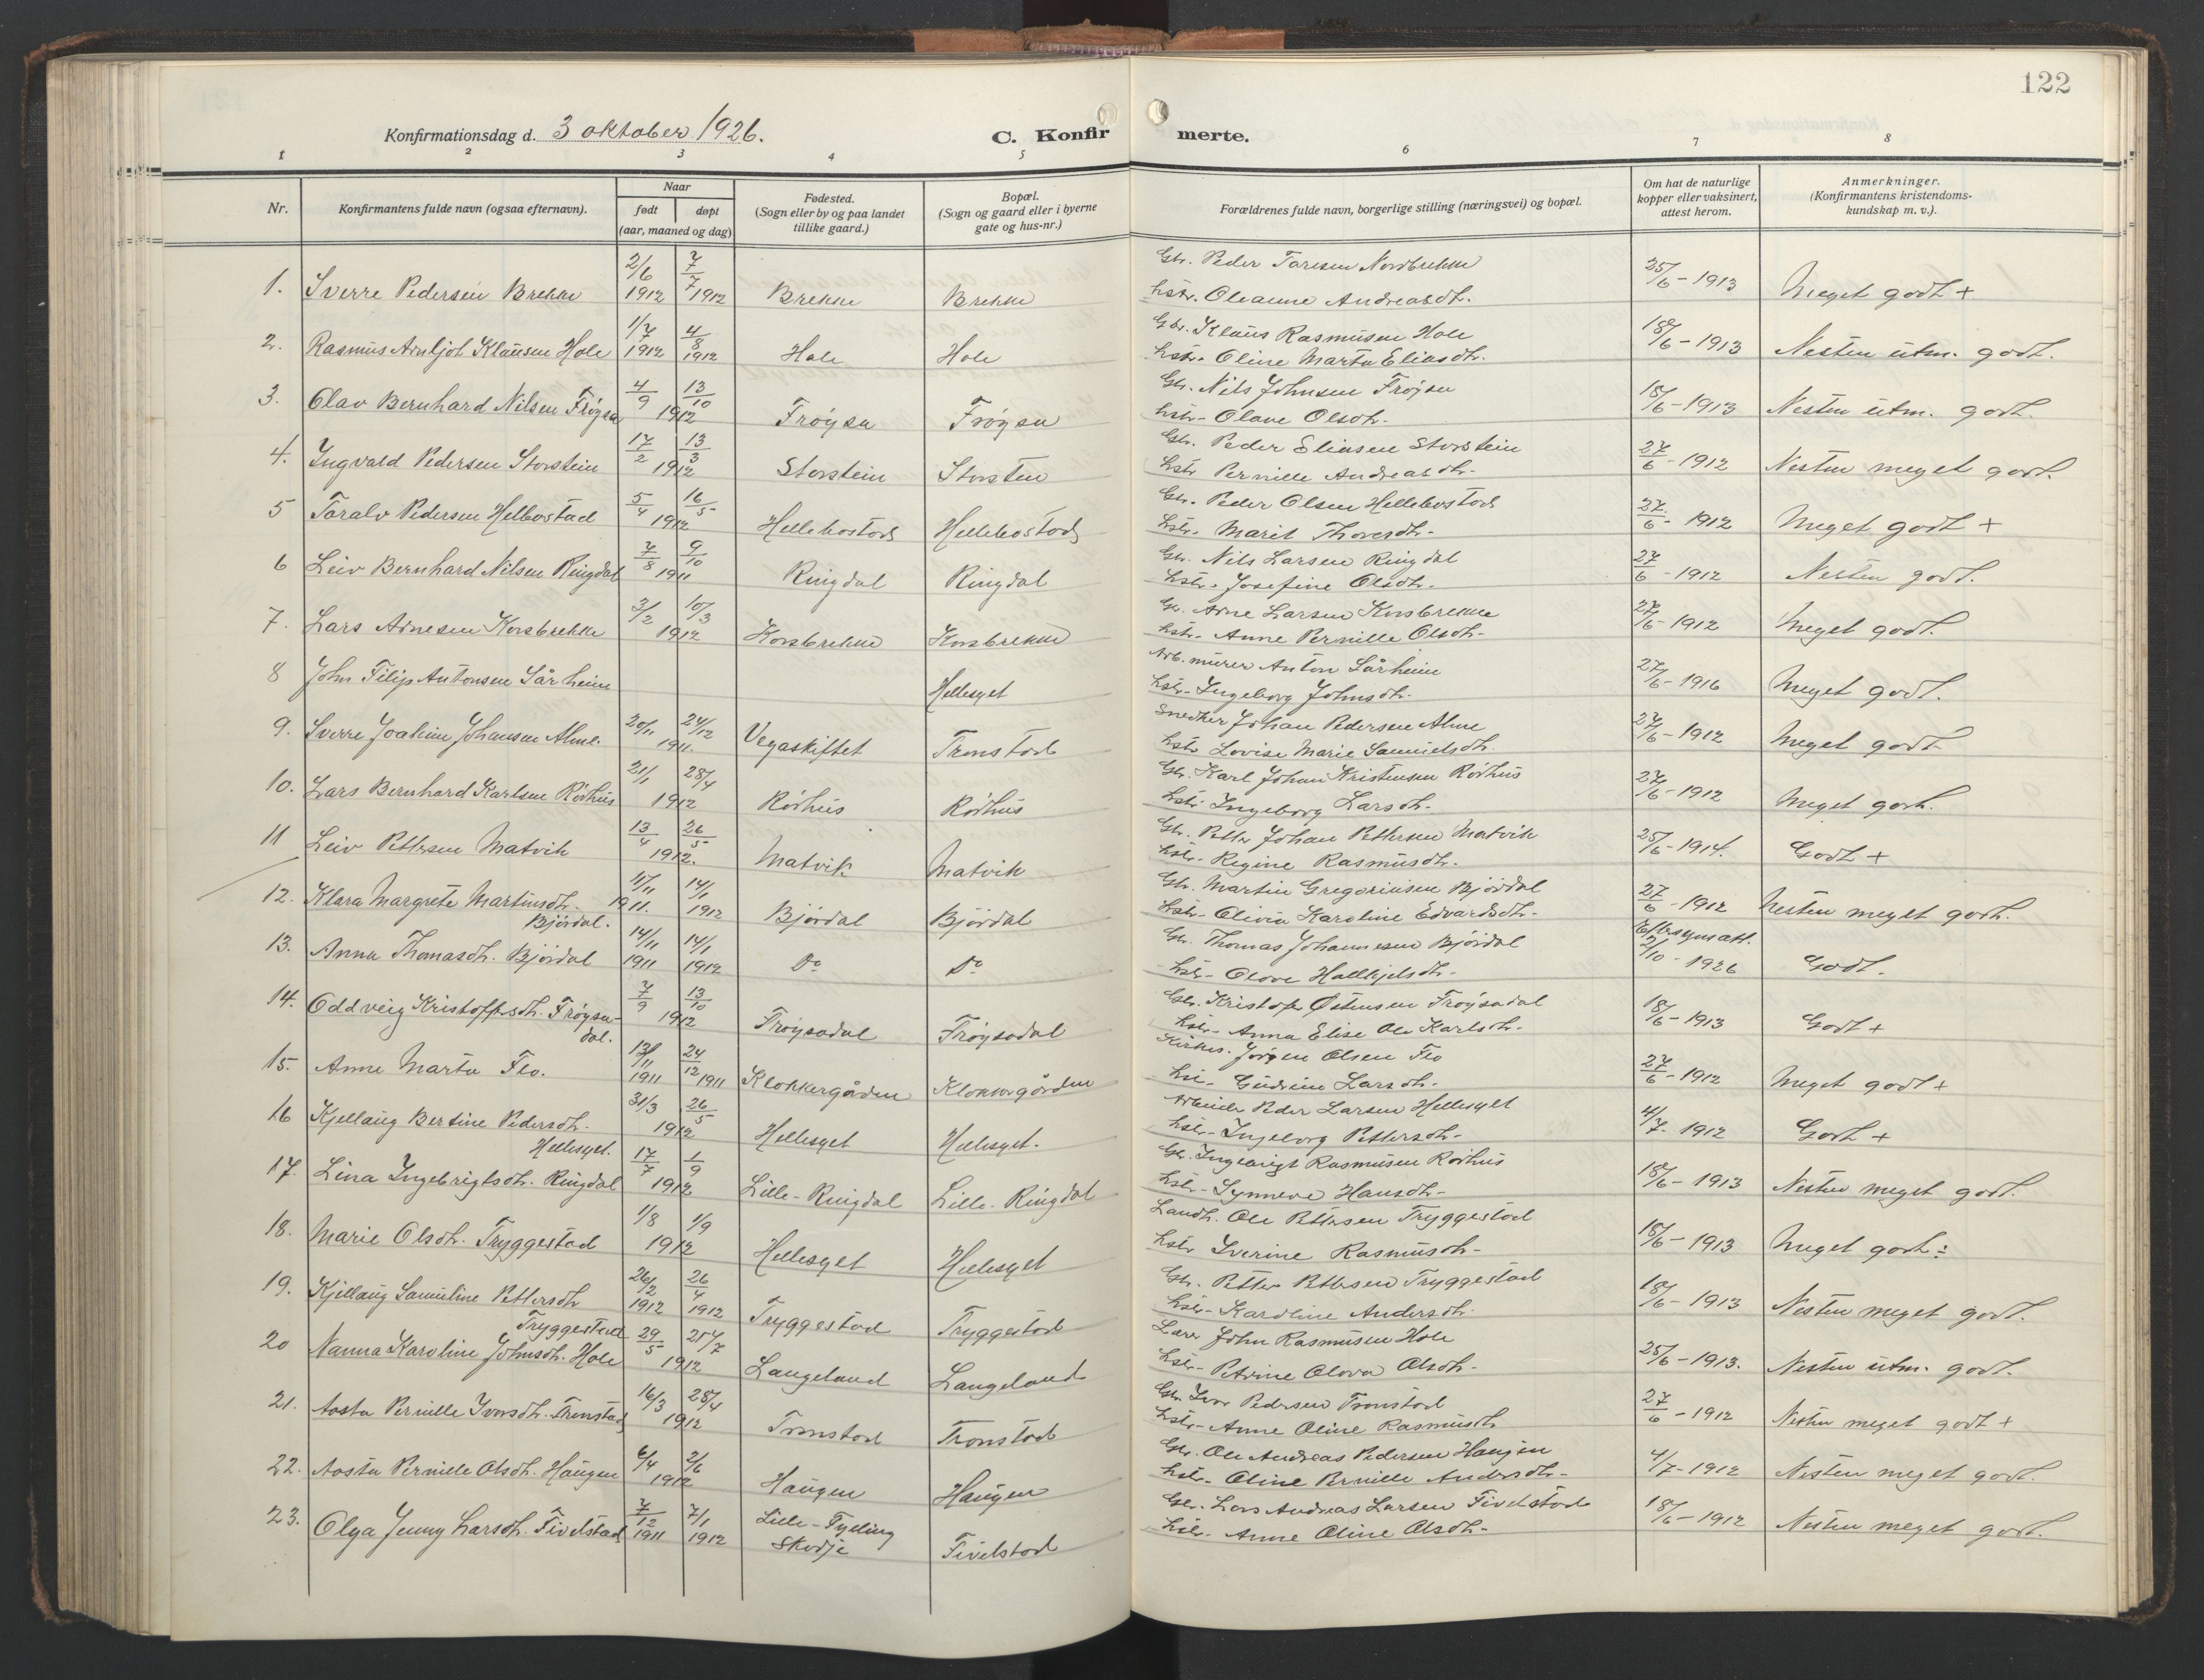 122
Konfirmationsdag d. 3 oktober 1926.
C. Konfirmerte.
1 2 3 4 5 6 7 8
Nr.
Konfirmantens fulde navn (ogsaa efternavn).
Naar
født døpt
(aar, maaned og dag)
Fødested.
(Sogn eller by og paa landet
tillike gaard.)
Bopæl.
(Sogn og gaard eller i byerne
gate og hus-nr.)
Forældrenes fulde navn, borgerlige stilling (næringsvei) og bopæl.
Om hat de naturlige
kopper eller vaksinert,
attest herom.
Anmerkninger.
(Konfirmantens kristendoms-
kundskap m. v.).
1. Sverre Pedersen Brekke 2/6 1912 7/7 1912 Brekke Brekke Gbr. Peder Taresen Nordbrekke
hstr. Oleanne Andreasdtr. 25/6-1913 Meget godt +
2. Rasmus Arnljot Klausen Hole 1/7 1912 4/8 1912 Hole Hole Gbr. Klaus Rasmusen Hole
hstr. Oline Marta Eliasdtr. 18/6-1913 Nesten utm. godt.
3. Olav Bernhard Nilsen Frøysa 4/9 13/10 1912 Frøysa Frøysa Gbr. Nils Johnsen Frøysa
hstr. Olave Olsdtr. 18/6-1913 Nesten utm. godt.
4. Ingvald Pedersen Storstein 17/2 13/3 1912 Storstein Storsten Gbr. Peder Eliasen Storstein
hstr Pernille Andreasdtr. 27/6-1912 Nesten meget godt.
5 Toralv Pedersen Helbostad 5/4 16/5 1912 Hellebostad Hellebostad Gbr. Peder Olsen Hellebostad
hstr. Marit Thoresdtr. 27/6-1912 Meget godt +
6 Leiv Bernhard Nilsen Ringdal 7/8 9/10 1911 Ringdal Ringdal Gbr. Nils Larsen Ringdal
hstr. Josefine Olsdtr. 27/6-1912 Nesten godt.
7. Lars Arnesen Korsbrekke 3/2 10/3 1912 Korsbrekke Korsbrekke Gbr. Arne Larsen Korsbrekke
hstr. Anne Pernille Olsdtr. 27/6-1912 Meget godt.
8 John Filip Antonsen Sårheim Hellesyet Arb. murer Anton Sårheim
hstr. Ingeborg Johnsdtr. 27/6-1916 Meget godt.
9. Sverre Joakim Johansen Alme. 20/11 24/12 1911. Vegaskiftet Tronstad Snedker Johan Pedersen Alme
hstr Lovise Marie Samuelsdtr. 27/6-1912 Meget godt
10. Lars Bernhard Karlsen Rörhus 21/1 28/4 1912 Rörhus Rörhus Gbr. Karl Johan Kristensen Rörhus
hstr Ingeborg Larsdtr. 27/6-1912 Meget godt.
11 Leiv Pettersen Matvik 13/4 26/5 1912. Matvik Matvik Gbr. Petter Johan Pettersen Matvik
hstr. Regine Rasmusdtr. 25/6-1914. Godt +
12. Klara Margrete Martinsdtr.
Bjørdal. 11/11 1911. 14/1 1912 Bjørdal Bjørdal Gbr. Martin Gregoriusen Bjørdal
hstr. Olivia Karoline Edvardsdtr. 27/6-1912 Nesten meget godt.
13. Anna Thomasdtr. Bjørdal 14/11 1911 14/1 1912 Do Do Gbr. Thomas Johannesen Bjørdal
hstr. Olove Hallkjelsdtr. Eftersynsatt.
2/10-1926 Godt.
14. Oddveig Kristoffersdtr. Frøysa-
dal. 7/9 13/10 1912 Frøysadal Frøysadal Gbr. Kristofer Østensen Frøysadal
hstr. Anna Elise Ole Karlsdtr. 18/6-1913 Godt +
15. Anne Marta Flo. 13/11 1911 24/12 1911 Klokkergården Klokkergården Kirkes. Jørgen Olsen Flo
hu. Gudrun Larsdtr. 27/6-1912 Meget godt +
16 Kjellaug Bertine Pedersdtr.
Hellesyet. 31/3 26/5 1912 Hellesyet Hellesyet. Arbeider Peder Larsen Hellesylt
hstr. Ingeborg Pettersdtr. 4/7-1912 Godt +
17. Lina Ingebrigtsdtr. Ringdal 17/7 1/9 1912 Lille-Ringdal Lille-Ringdal Gbr. Ingebrigt Rasmusen Rörhus
hstr. Synneve Hansdtr. 18/6-1913 Nesten meget godt.
18. Marie Olsdtr. Tryggestad 1/8 1/9 1912 Hellesyet Hellesyet Landh. Ole Pettersen Tryggestad
hstr Iverine Rasmusdtr. 18/6-1913 Meget godt ÷
19. Kjellaug Samuline Pettersdtr
Tryggestad 26/2 1912 26/4 1912 Tryggestad Tryggestad Gbr. Petter Pettersen Tryggestad
hstr. Karoline Andersdtr. 18/6-1913 Nesten meget godt.
20 Nanna Karoline Johnsdtr. Hole 29/5 25/7 1912 Langeland Langeland Lærer John Rasmusen Hole
hstr. Petrine Olova Olsdtr. 25/6-1913. Nesten utm. godt.
21. Aasta Pernille Iversdtr. Tronstad 16/3 28/4 1912 Tronstad Tronstad Gbr. Iver Pedersen Tronstad
hstr. Anne Oline Rasmusdtr 27/6-1912 Nesten meget godt +
22. Aasta Pernille Olsdtr. Haugen 6/4 2/6 1912 Haugen Haugen Gbr. Ole Andreas Pedersen Haugen
hstr. Oline Pernille Andersdtr. 4/7-1912 Nesten meget godt.
23. Olga Jenny Larsdtr. Fivelstad 7/12 1911 7/1 1912 Lille-Fyling
Skodje Fivelstad Gbr. Lars Andreas Larsen Fivelstad
hstr. Anne Oline Olsdtr. 18/6-1912 Nesten meget godt.